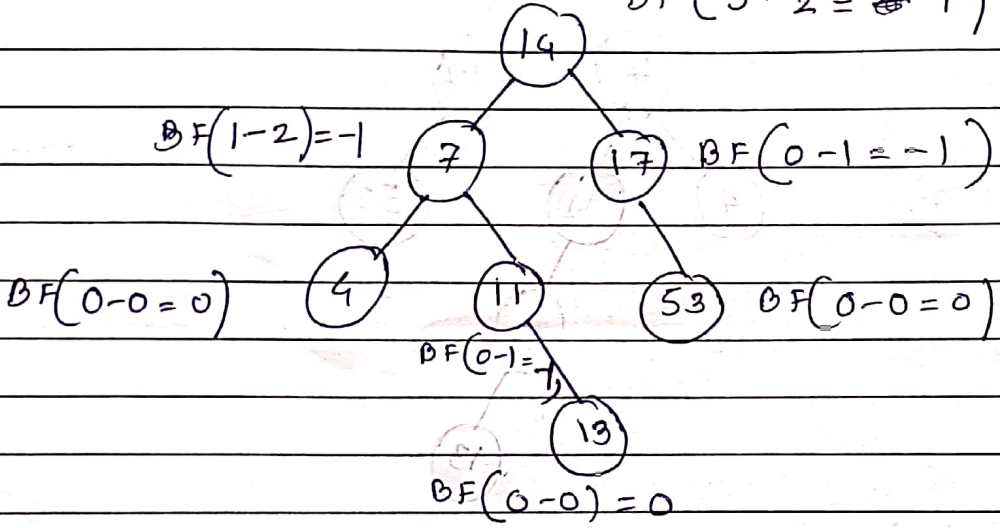 14
BF(1-2)=-1
7
17
BF(0-1=-1)
BF(0-0=0)
4
11
53
BF(0-0=0)
BF(0-1=-1)
13
BF(0-0)=0